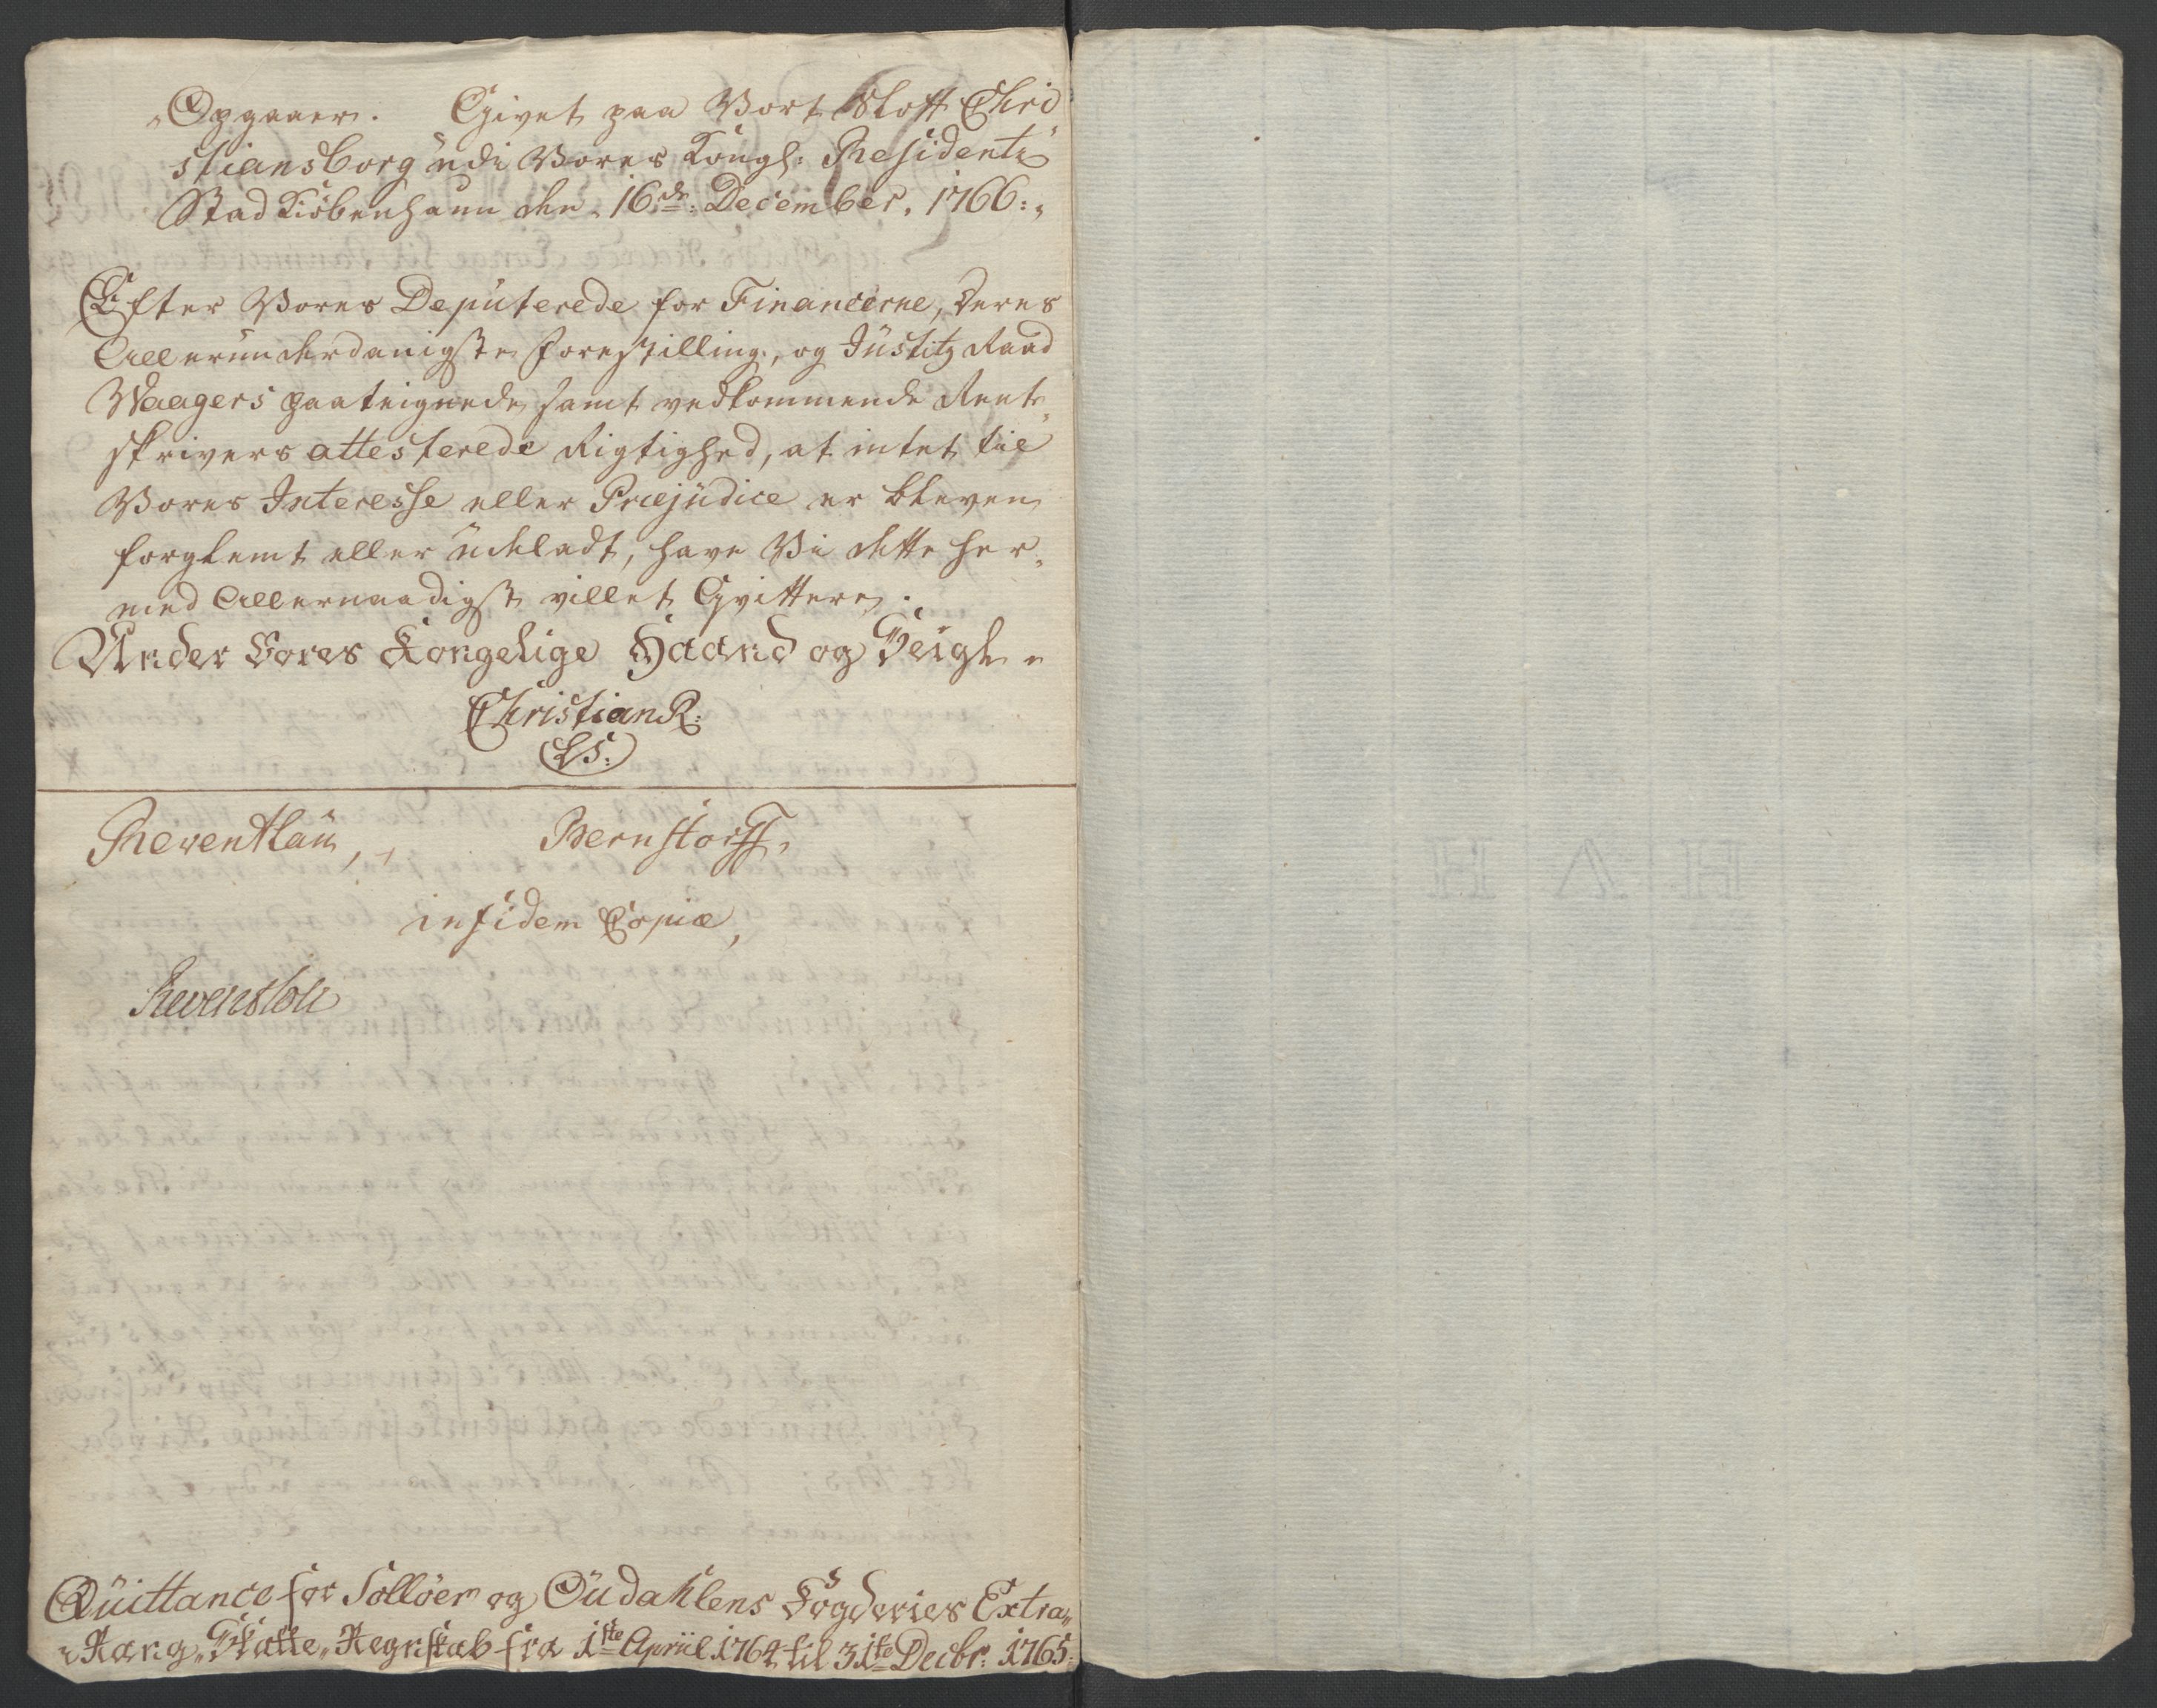 „Opgaaer. Givet paa Vort Slott Chri
stiansborg udi Vores Kongl: Residentz
Stad Kiöbenhaun den 16de: December. 1766:„
Efter Vores Deputerede for Financerne, deres
Allerunderdanigste Forestilling, og Justitz Raad
Waagers paateignede samt vedkommende Rent„
skrivers attesterede Rigtighed, at intet til
Vores Interesse eller Præjudice er bleven
forglemt eller udeladt, have Vi dette her„
med Allernaadigst villet Qvittere.
Under Vores Kongelige Haand og Seigl„
Christian R:
(LS:)
Reventlau, Bernstorff,
in fidem Copiæ,
Reventlou
Quittance for Solløer og Oudahlens Fogderies Extra„
„Rang„Skatte„Regnskab fra 1ste Apriil 1764 til 31te Decbr: 1765: